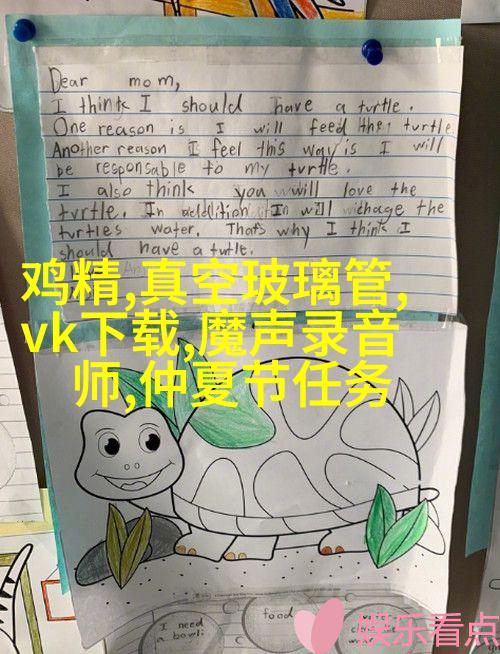 Dear mom,
I think I should have a turtle.
One reason is I will feed the turtle.
Another reason I feel this way is I will
be responsable to my turtle.
I also think you will love the
turtle. In addition I will chage the
turtles water. Thats why I think I
should have a turtle.
鸡精,真空玻璃管,
vk下载,魔声录音
师,仲夏节任务
I need
a bowl
food
娱乐看点